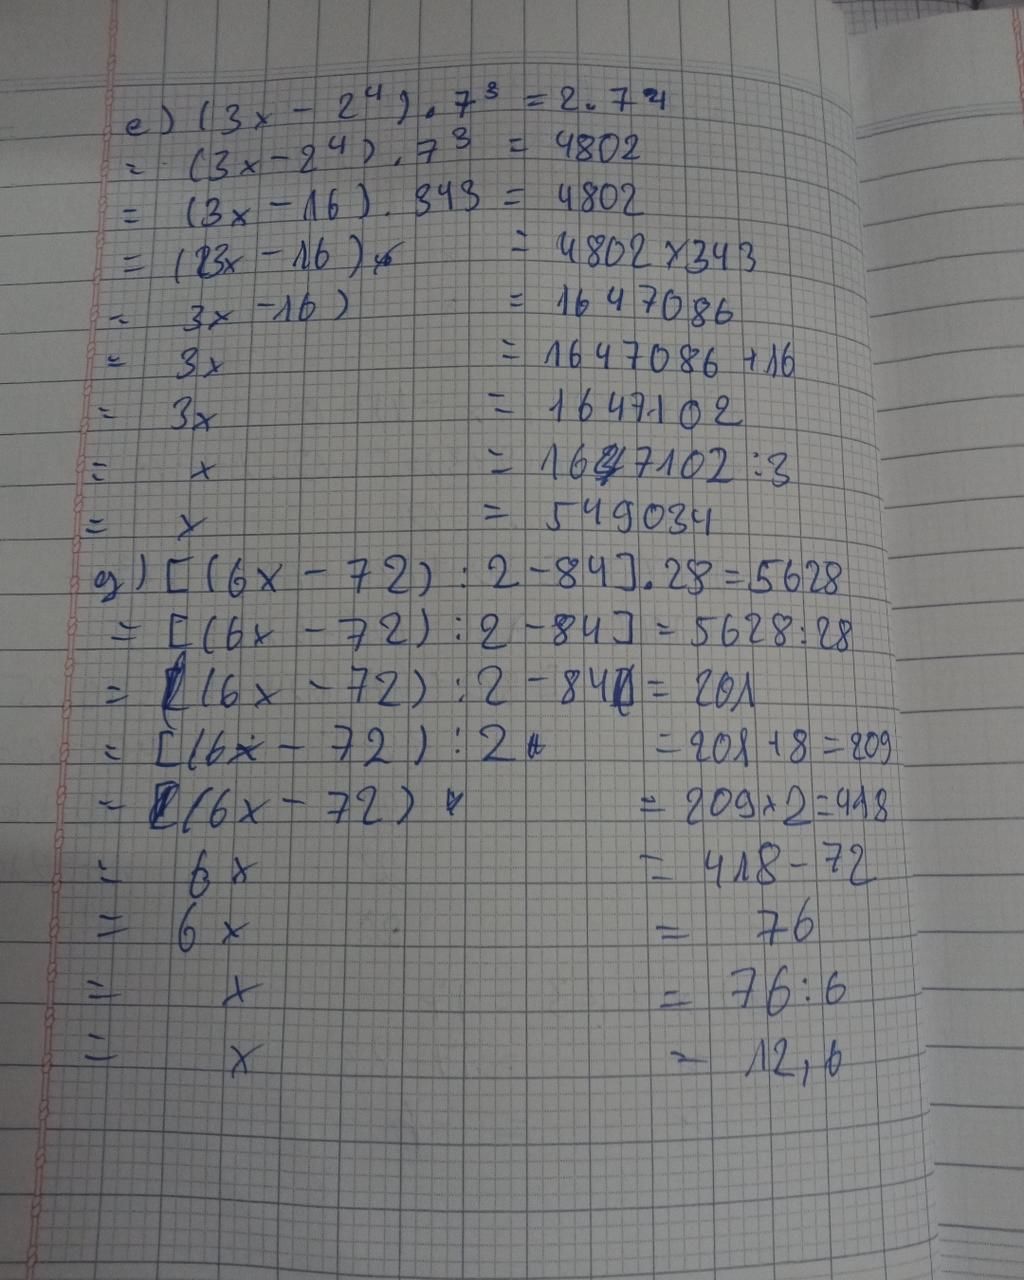 e) (3x - 2⁴) . 7³ = 2 . 7⁴
= (3x - 2⁴) . 7³ = 4802
= (3x - 16) . 343 = 4802
= (3x - 16) = 4802 x 343
= 3x - 16) = 1647086
= 3x = 1647086 + 16
= 3x = 1647102
= x = 1647102 : 3
= x = 549034
g) [(6x - 72) : 2 - 84] . 28 = 5628
= [(6x - 72) : 2 - 84] = 5628 : 28
= [(6x - 72) : 2 - 84] = 201
= [(6x - 72) : 2 = 201 + 8 = 209
= [(6x - 72) = 209 x 2 = 418
= 6x = 418 - 72
= 6x = 76
= x = 76 : 6
= x = 12,6